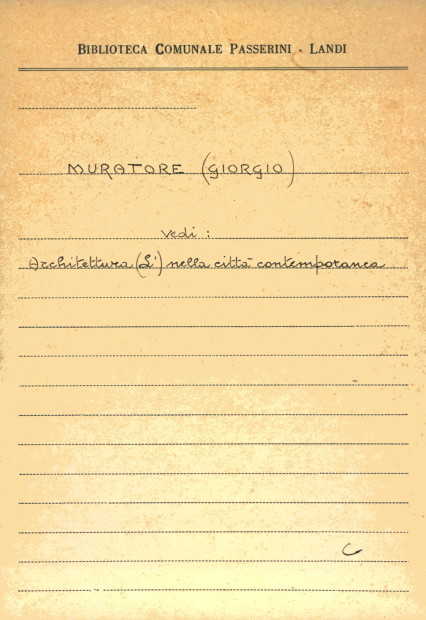 BIBLIOTECA COMUNALE PASSERINI - LANDI
MURATORE (GIORGIO)
vedi :
Architettura (L') nella città contemporanea
C